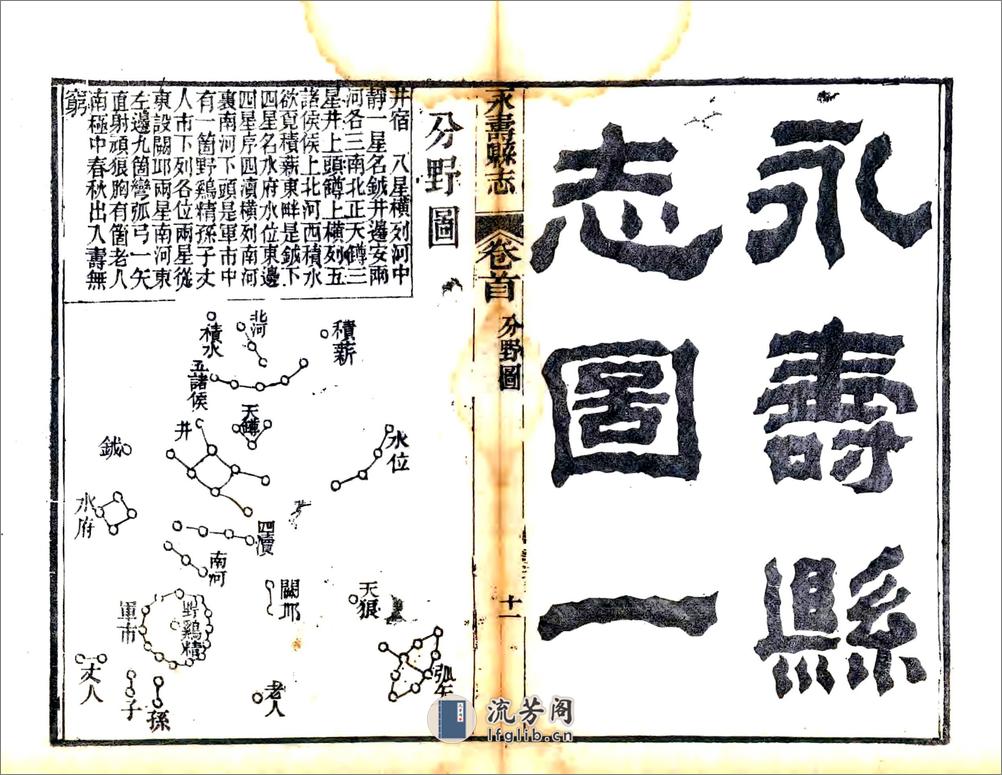 永壽縣
志圖一
永壽縣志
卷首
分野圖
十一
分野圖
井宿　八星橫列河中
靜一星名鉞井邊安兩
河各三南北正天鐏三
星井上頭鐏上橫列五
諸候候上北河西積水
欲覓積薪東畔是鉞下
四星名水府水位東邊
四星序四瀆橫列南河
裏南河下頭是軍市中
有一箇野鷄精孫子丈
人市下列各位兩星從
東設闕邱兩星南河東
左邊九箇彎弧弓一矢
直射頑狼胸有箇老人
南極中春秋出入壽無
窮
積薪
北河
積水
五諸候
天鐏
井
水位
鉞
水府
四瀆
南河
闕邱
天狼
軍市
野鷄精
丈人
子
孫
老人
弧矢
流芳阁
lfglib.cn